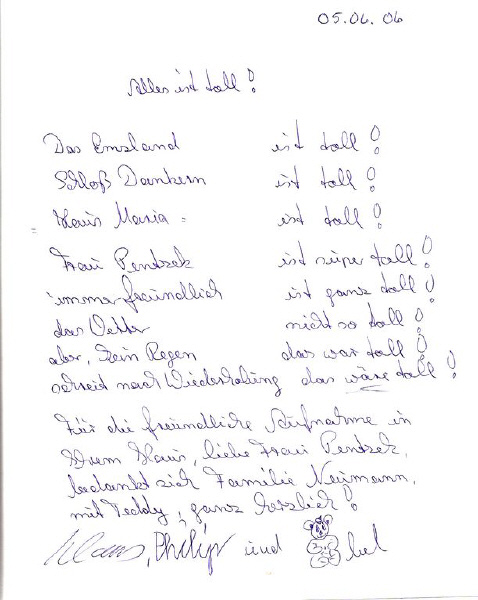 05.06.06
Alles ist toll!
Das Emsland ist toll!
Schloß Dankern ist toll!
Haus Maria ist toll!
Frau Pentzek ist super toll!
immer freundlich ist ganz toll!
das Wetter nicht so toll!
aber, kein Regen das war toll!
schreit nach Wiederholung das wäre toll!
Für die freundliche Aufnahme in
Ihrem Haus, liebe Frau Pentzek,
bedankt sich Familie Neumann,
mit Teddy, ganz herzlich!
Klaus, Philip und bel